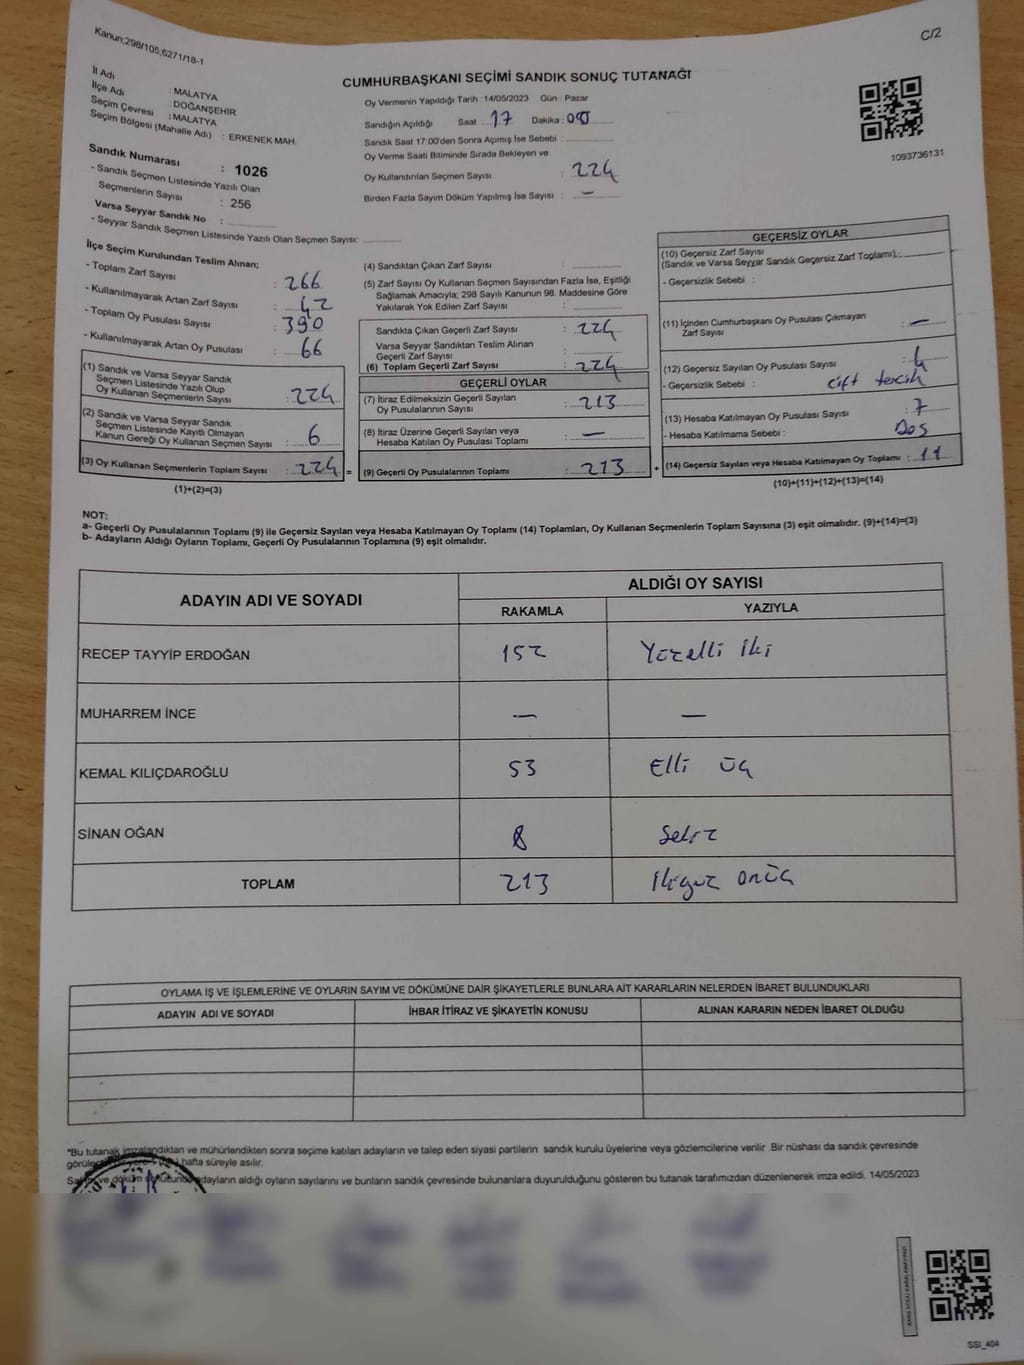 Kanun;298/105,6271/18-1
C/2
CUMHURBAŞKANI SEÇİMİ SANDIK SONUÇ TUTANAĞI
İl Adı : MALATYA
İlçe Adı : DOĞANŞEHİR
Seçim Çevresi : MALATYA
Seçim Bölgesi (Mahalle Adı) : ERKENEK MAH.
Sandık Numarası : 1026
- Sandık Seçmen Listesinde Yazılı Olan
Seçmenlerin Sayısı : 256
Varsa Seyyar Sandık No :
- Seyyar Sandık Seçmen Listesinde Yazılı Olan Seçmen Sayısı:
Oy Vermenin Yapıldığı Tarih :14/05/2023 Gün : Pazar
Sandığın Açıldığı Saat : 17 Dakika : 00
Sandık Saat 17:00'den Sonra Açımış İse Sebebi :
Oy Verme Saati Bitiminde Sırada Bekleyen ve
Oy Kullandırılan Seçmen Sayısı : 224
Birden Fazla Sayım Döküm Yapılmış İse Sayısı : —
1093736131
İlçe Seçim Kurulundan Teslim Alınan;
- Toplam Zarf Sayısı : 266
- Kullanılmayarak Artan Zarf Sayısı : 42
- Toplam Oy Pusulası Sayısı : 390
- Kullanılmayarak Artan Oy Pusulası : 66
(1) Sandık ve Varsa Seyyar Sandık
Seçmen Listesinde Yazılı Olup
Oy Kullanan Seçmenlerin Sayısı : 224
(2) Sandık ve Varsa Seyyar Sandık
Seçmen Listesinde Kayıtlı Olmayan
Kanun Gereği Oy Kullanan Seçmen Sayısı : 6
(3) Oy Kullanan Seçmenlerin Toplam Sayısı : 224 =
(1)+(2)=(3)
(4) Sandıktan Çıkan Zarf Sayısı :
(5) Zarf Sayısı Oy Kullanan Seçmen Sayısından Fazla İse, Eşitliği
Sağlamak Amacıyla; 298 Sayılı Kanunun 98. Maddesine Göre
Yakılarak Yok Edilen Zarf Sayısı :
Sandıkta Çıkan Geçerli Zarf Sayısı : 224
Varsa Seyyar Sandıktan Teslim Alınan
Geçerli Zarf Sayısı :
(6) Toplam Geçerli Zarf Sayısı : 224
GEÇERLİ OYLAR
(7) İtiraz Edilmeksizin Geçerli Sayılan
Oy Pusulalarının Sayısı : 213
(8) İtiraz Üzerine Geçerli Sayılan veya
Hesaba Katılan Oy Pusulası Toplamı : —
(9) Geçerli Oy Pusulalarının Toplamı : 213 +
GEÇERSİZ OYLAR
(10) Geçersiz Zarf Sayısı
(Sandık ve Varsa Seyyar Sandık Geçersiz Zarf Toplamı) :
- Geçersizlik Sebebi :
(11) İçinden Cumhurbaşkanı Oy Pusulası Çıkmayan
Zarf Sayısı : —
(12) Geçersiz Sayılan Oy Pusulası Sayısı : 4
- Geçersizlik Sebebi : çift tercih
(13) Hesaba Katılmayan Oy Pusulası Sayısı : 7
- Hesaba Katılmama Sebebi : Boş
(14) Geçersiz Sayılan veya Hesaba Katılmayan Oy Toplamı : 11
(10)+(11)+(12)+(13)=(14)
NOT:
a- Geçerli Oy Pusulalarının Toplamı (9) ile Geçersiz Sayılan veya Hesaba Katılmayan Oy Toplamı (14) Toplamları, Oy Kullanan Seçmenlerin Toplam Sayısına (3) eşit olmalıdır. (9)+(14)=(3)
b- Adayların Aldığı Oyların Toplamı, Geçerli Oy Pusulalarının Toplamına (9) eşit olmalıdır.
ADAYIN ADI VE SOYADI ALDIĞI OY SAYISI
RAKAMLA YAZIYLA
RECEP TAYYİP ERDOĞAN 152 Yüzelli iki
MUHARREM İNCE — —
KEMAL KILIÇDAROĞLU 53 Elli üç
SİNAN OĞAN 8 Sekiz
TOPLAM 213 İkiyüz onüç
OYLAMA İŞ VE İŞLEMLERİNE VE OYLARIN SAYIM VE DÖKÜMÜNE DAİR ŞİKAYETLERLE BUNLARA AİT KARARLARIN NELERDEN İBARET BULUNDUKLARI
ADAYIN ADI VE SOYADI İHBAR İTİRAZ VE ŞİKAYETİN KONUSU ALINAN KARARIN NEDEN İBARET OLDUĞU
*Bu tutanak imzalandıktan ve mühürlendikten sonra seçime katılan adayların ve talep eden siyasi partilerin sandık kurulu üyelerine veya gözlemcilerine verilir. Bir nüshası da sandık çevresinde
hafta süreyle asılır.
ve döküm adayların aldığı oyların sayılarını ve bunların sandık çevresinde bulunanlara duyurulduğunu gösteren bu tutanak tarafımızdan düzenlenerek imza edildi. 14/05/2023
SSI_404